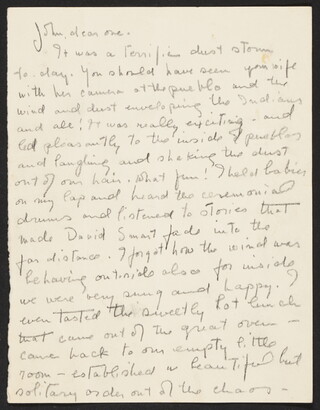 John, dear one.
It was a terrific dust storm
to-day. You should have seen your wife
with her camera at the pueblo and the
wind and dust enveloping the Indians
and all! It was really exciting - and
led pleasantly to the inside of pueblos
and laughing and shaking the dust
out of our hair. What fun! I held babies
on my lap and heard the ceremonial
drums and listened to stories that
made David Smart fade into the
far distance. I forgot how the wind was
behaving outside also for inside
we were very snug and happy. I
even tasted the sweetly hot lunch
that came out of the great oven -
came back to our empty little
room - established a beautiful but
solitary order out of the chaos -